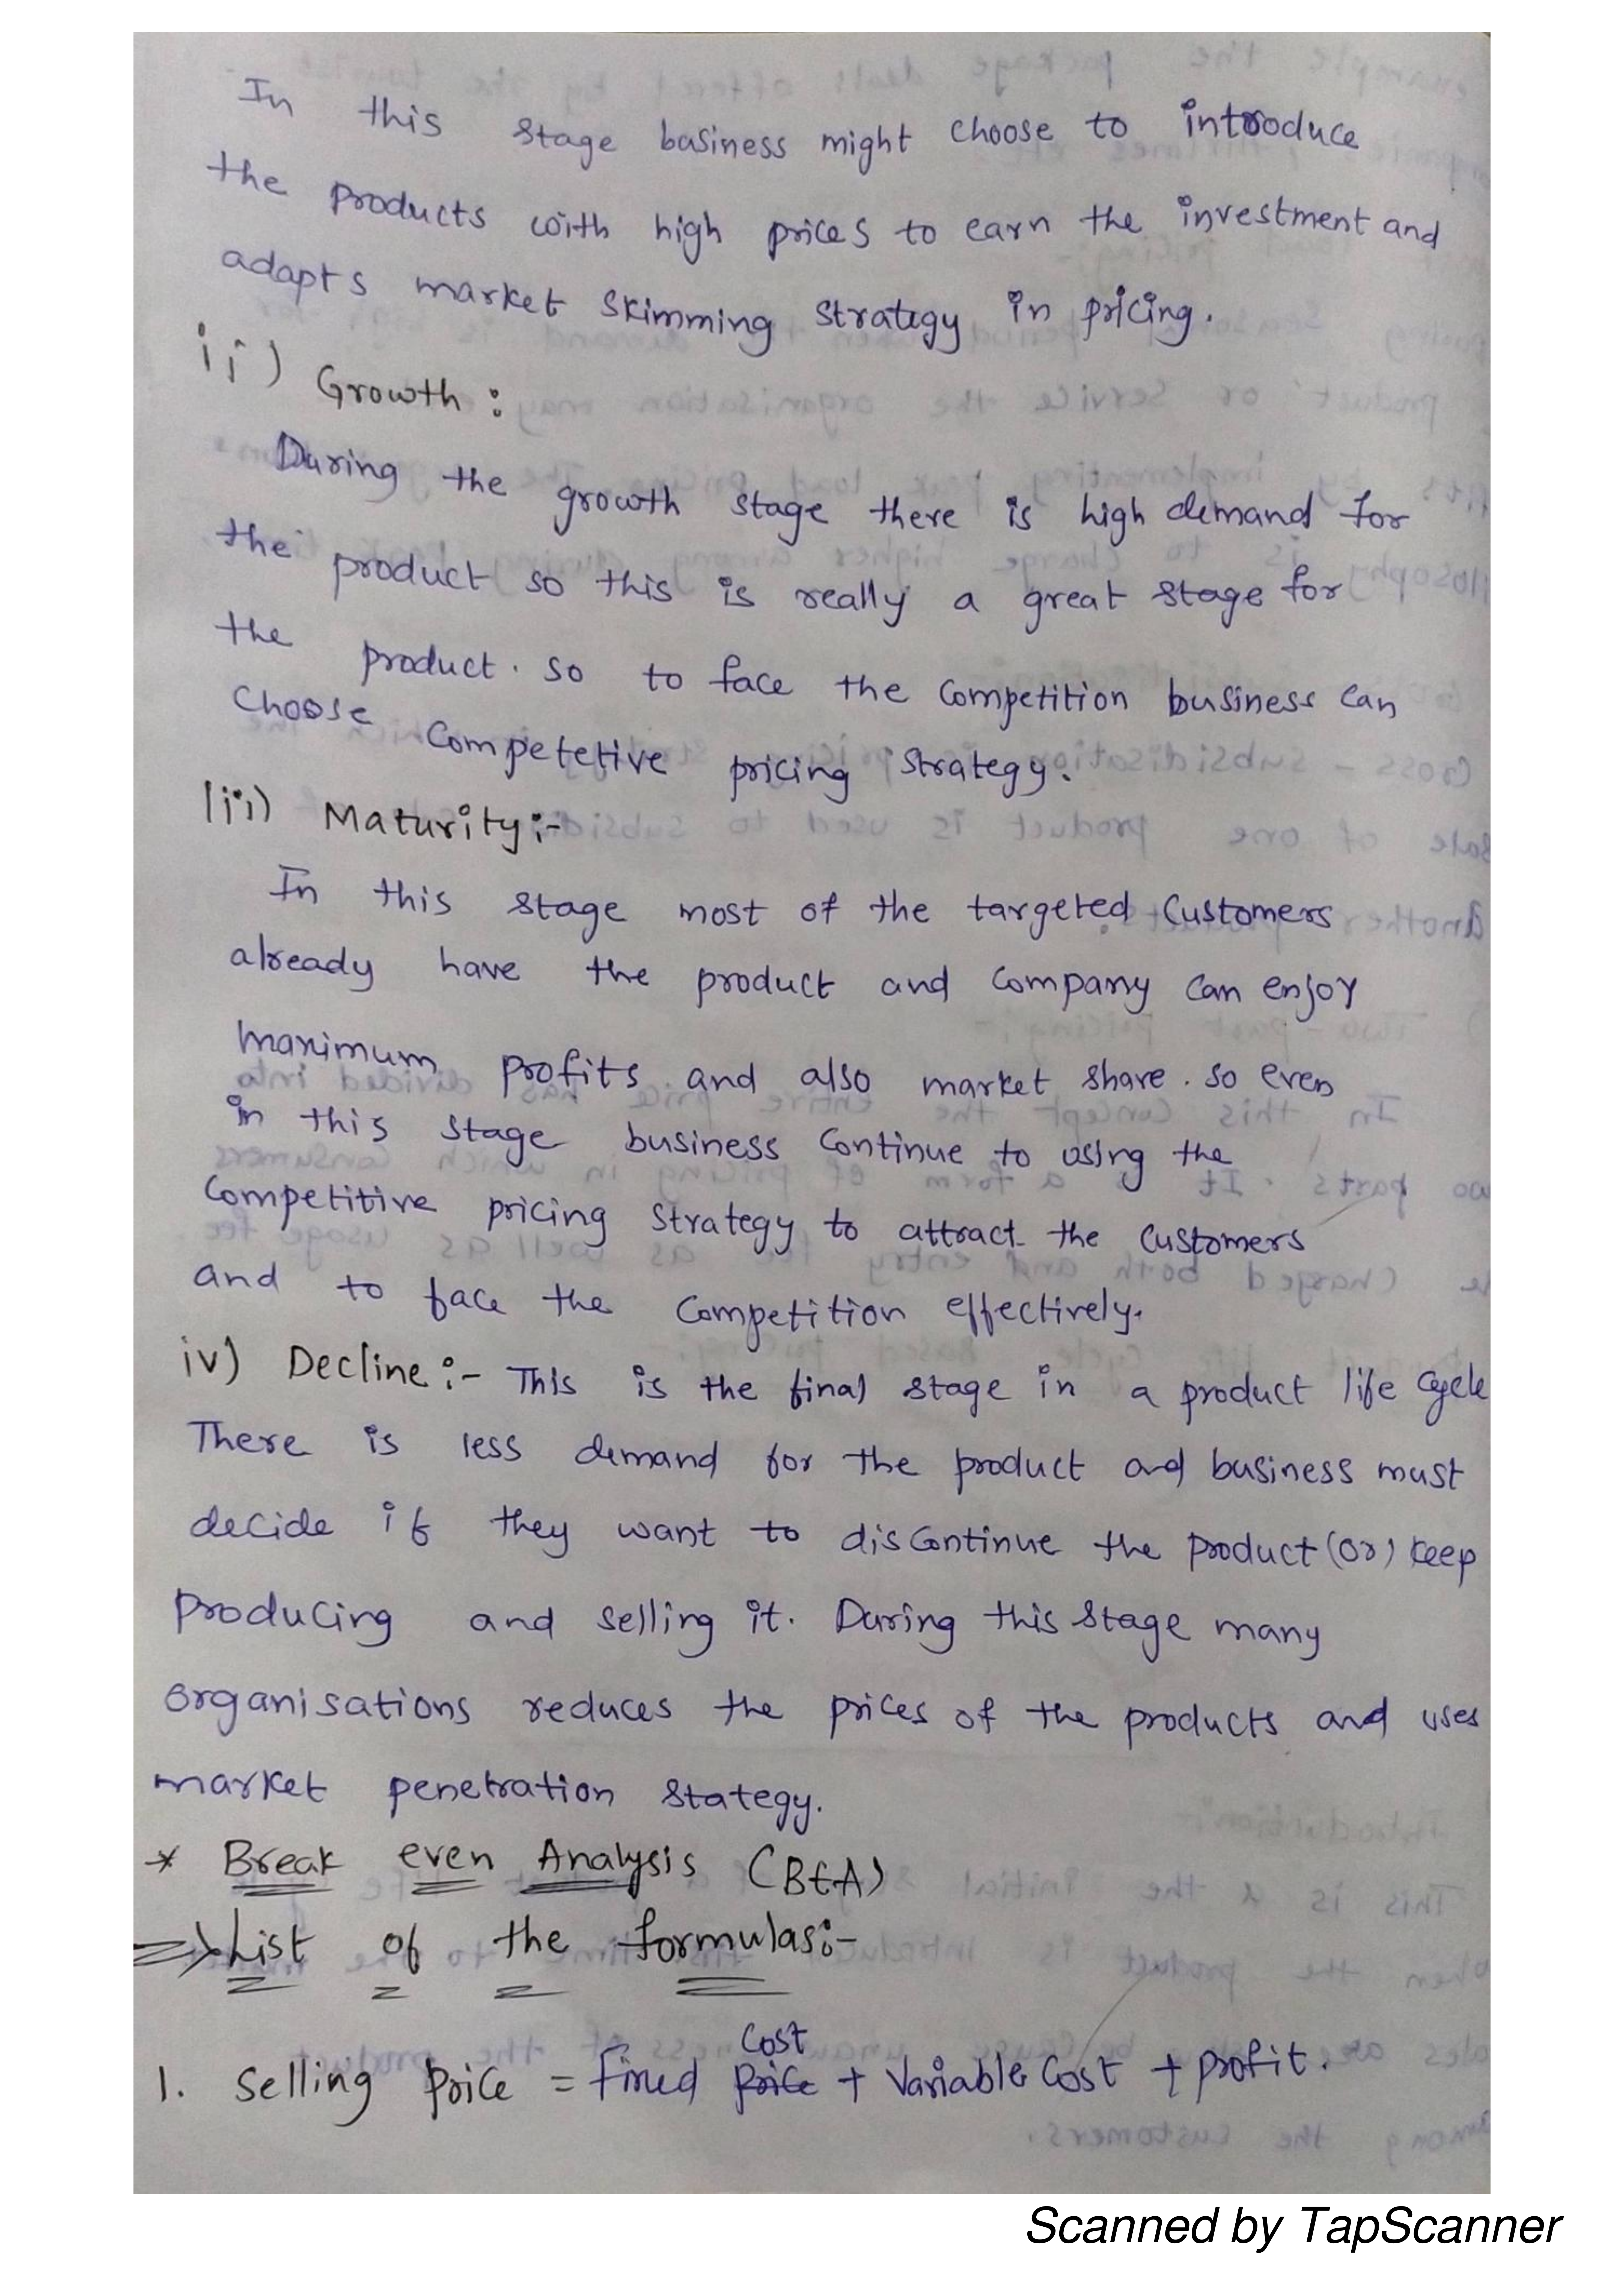 In this stage basiness might choose to introduce
the products with high prices to earn the investment and
adapts market skimming strategy in pricing.
ii) Growth :
During the growth stage there is high demand for
the product so this is really a great stage for
the product. so to face the competition business can
choose competetive pricing strategy.
iii) Maturity:-
In this stage most of the targeted customers
already have the product and company can enjoy
maximum profits and also market share. so even
in this stage business continue to using the
competitive pricing strategy to attract the customers
and to face the competition effectively.
iv) Decline:- This is the final stage in a product life cycle
There is less demand for the product and business must
decide if they want to discontinue the product (or) keep
producing and selling it. During this stage many
organisations reduces the prices of the products and uses
market penetration stategy.
* Break even Analysis (BEA)
=> List of the formulas:-
cost
1. selling price = Fixed price + Variable cost + profit.
Scanned by TapScanner